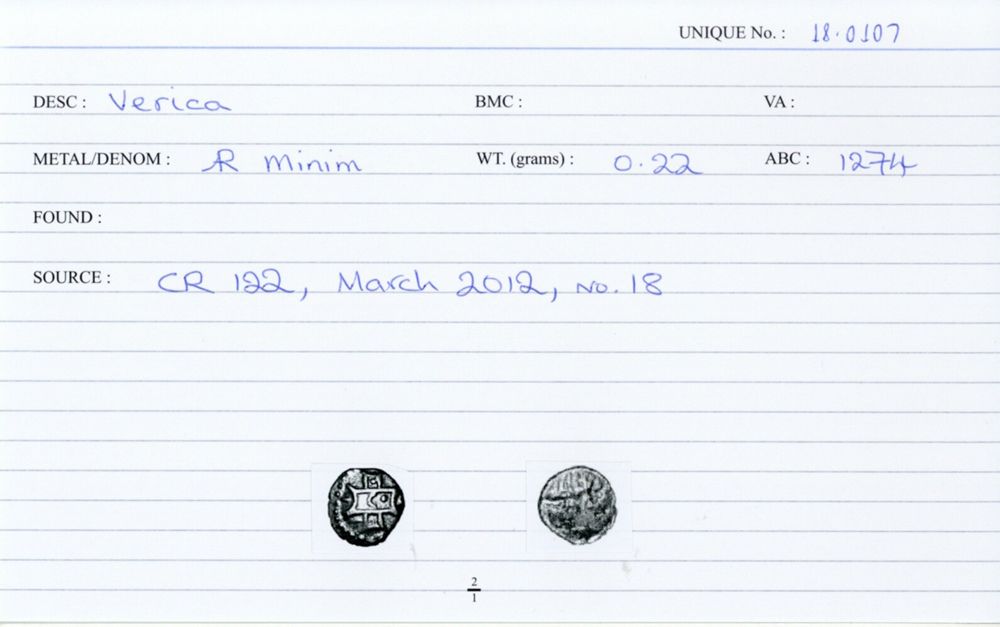 UNIQUE No. : 18.0107
DESC : Verica BMC : VA :
METAL/DENOM : AR Minim WT. (grams) : 0.22 ABC : 1274
FOUND :
SOURCE : CR 122, March 2012, no. 18
2
1